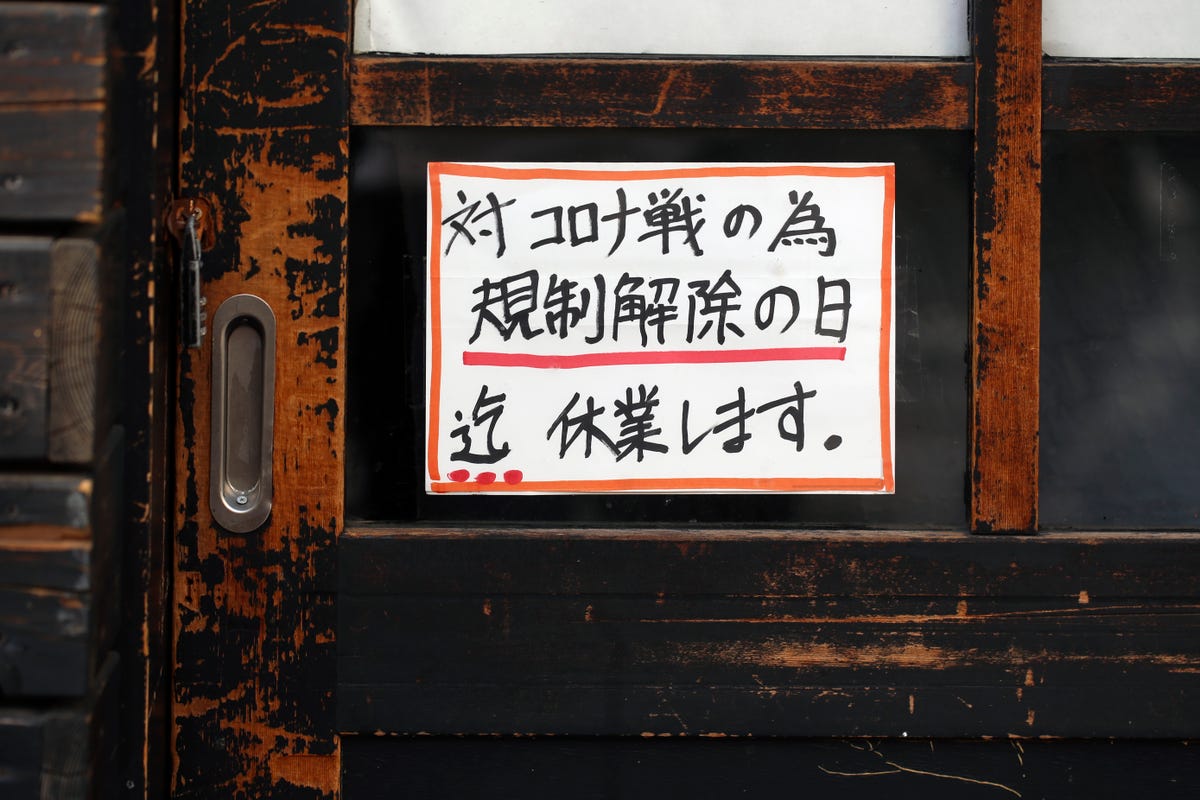 対コロナ戦の為
規制解除の日
迄 休業します.